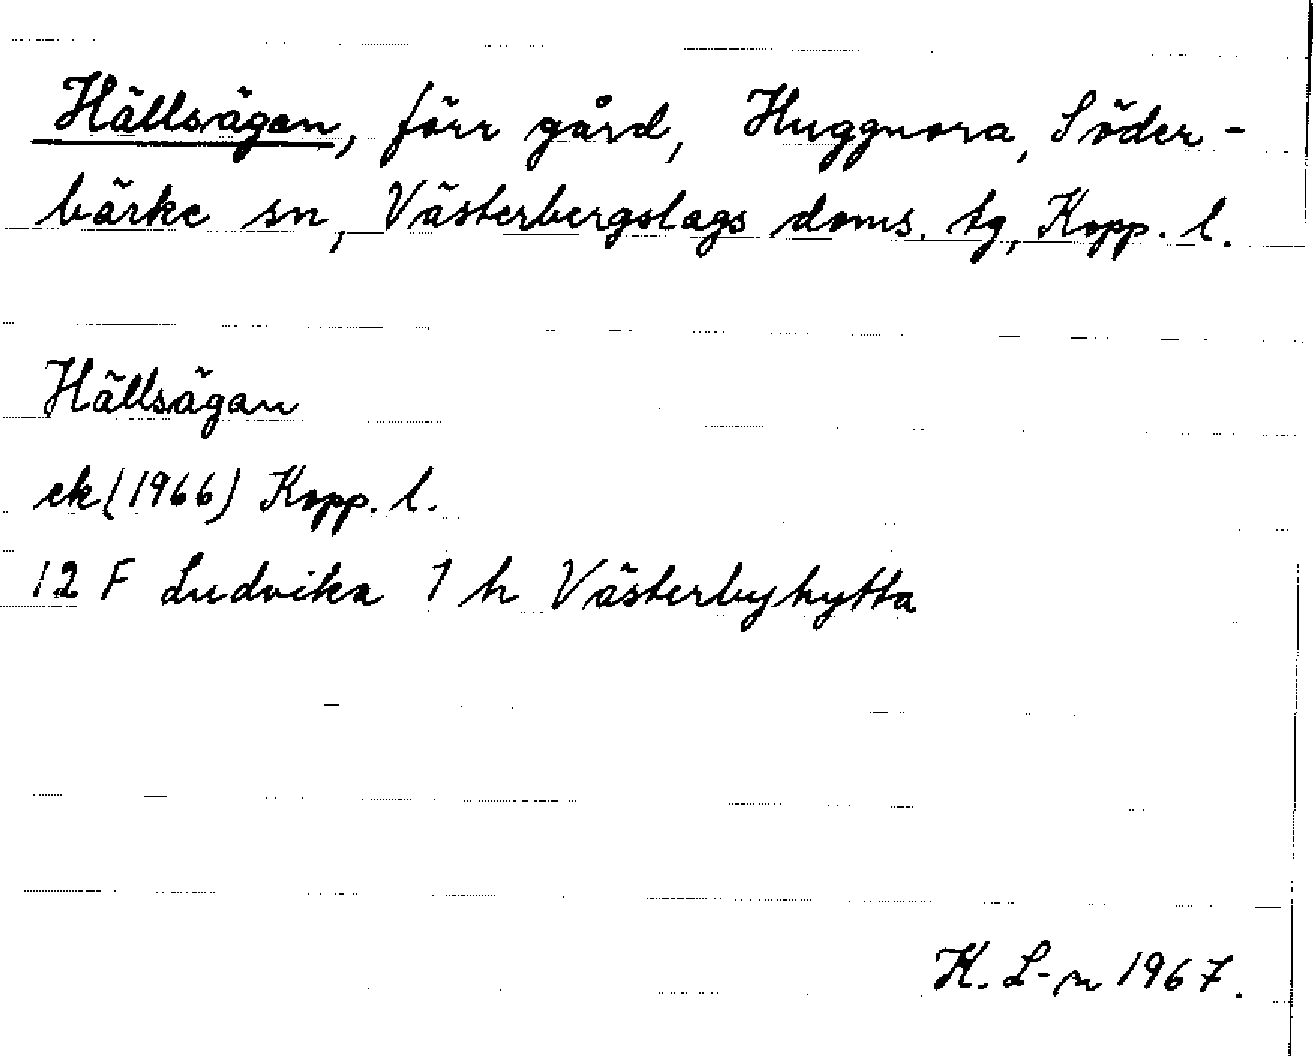 Hällsägan, förr gård, Huggnora, Söder-
bärke sn, Västerbergslags doms. tg, Kopp. l.
Hällsägan
ek (1966) Kopp. l.
12 F Ludvika 1 h Västerbyhytta
K. L-n 1967.